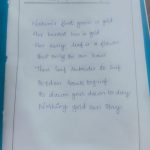 Nature's first green is gold
Her hardest hue to gold
Her early leaf's a flower
But only so an hour
Then leaf subsides to leaf
So Eden sank to grief
So dawn goes down to day
Nothing gold can stay